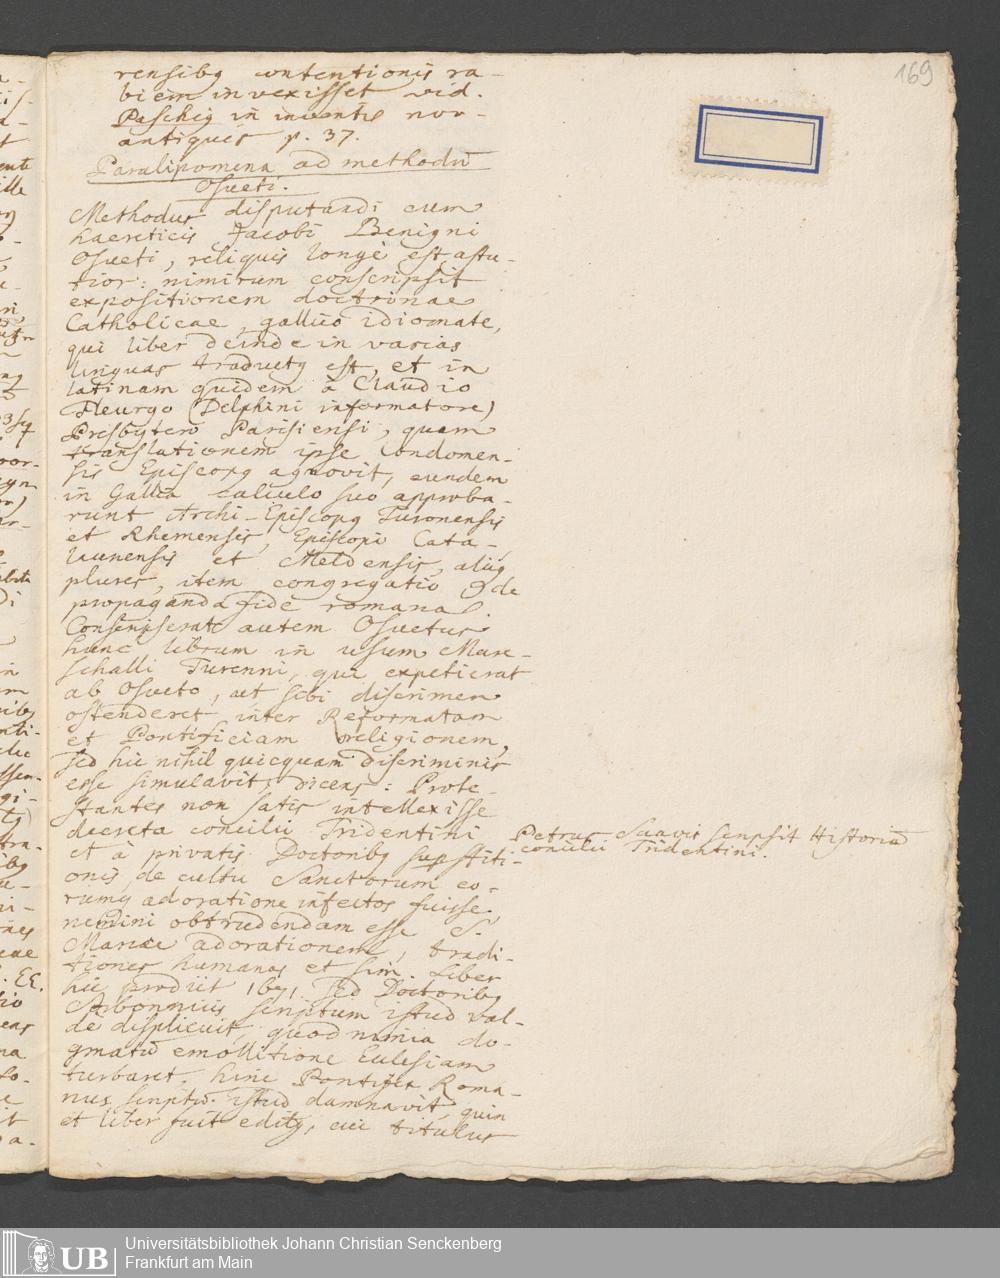 169
rensibg contentionis ra-
biem invexisset vid.
Paschig in inventis nov-
antiquis p. 37.
Paralipomena ad methodū
Osueti.
Methodus disputandi cum
haereticis Jacobi Benigni
Osueti, reliquis longè est astu-
tior: nimirum conscripsit
expositionem doctrinae
Catholicae, gallico idiomate,
qui liber deinde in varias
linguas traductg est, et in
latinam quidem à Claudio
Fleurgo (Delphini informatore)
Presbytero Parisiensi, quam
translationem ipse Condomen-
sis Episcopg agnovit, eundem
in Gallia calculo suo approba-
runt Archi-Episcopg Turonensis
et Rhemensis, Episcopi Cata-
launensis et Meldensis, aliig
plures, item congregatio de
propaganda fide romana.
Conscripserat autem Osuetus
hunc librum in usum Mare-
schalli Turenni, qui expetierat
ab Osueto, ut sibi discrimen
ostenderet inter Reformatam
et Pontificiam religionem,
sed hic nihil quicquam discriminis
esse simulavit, dicens: Prote-
stantes non satis intellexisse
decreta concilii Tridentini
et à privatis Doctoribg supstiti-
onis, de cultu Sanctorum eo-
rumg adoratione infectos fuisse,
nemini obtrudendam esse S.
Mariae adorationem, tradi-
tiones humanas et sim. Liber
hic prodiit 1671. Sed Doctoribg
Sorbonnicis scriptum istud val-
de displicuit, quod nimia do-
gmatū emollitione Eclesiam
turbaret, hinc Pontifex Roma-
nus scriptū istud damnavit, quin
et liber fuit editg, cui titulus
Petrus Suavis scripsit Historiā
concilii Tridentini.
UB
Universitätsbibliothek Johann Christian Senckenberg
Frankfurt am Main